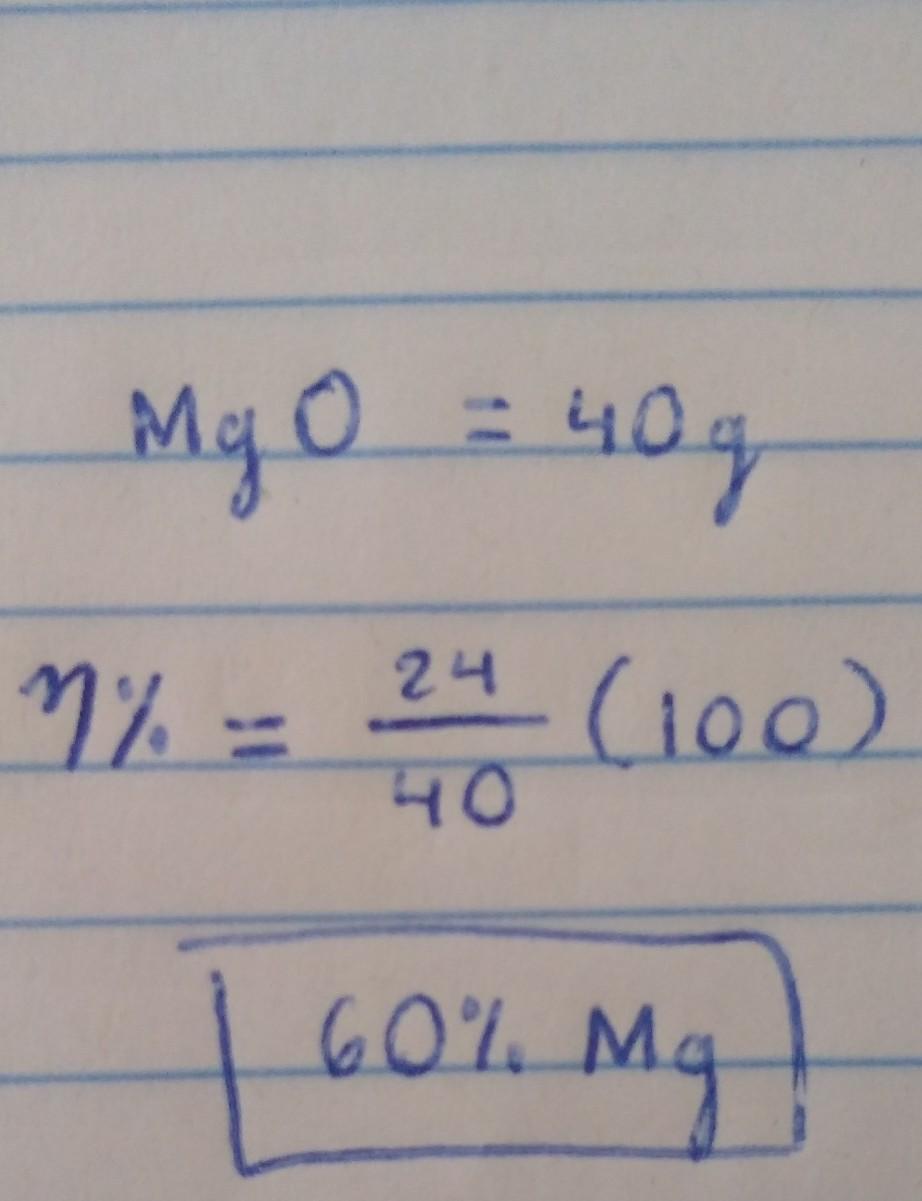 MgO = 40g
η% = 24/40 (100)
60% Mg